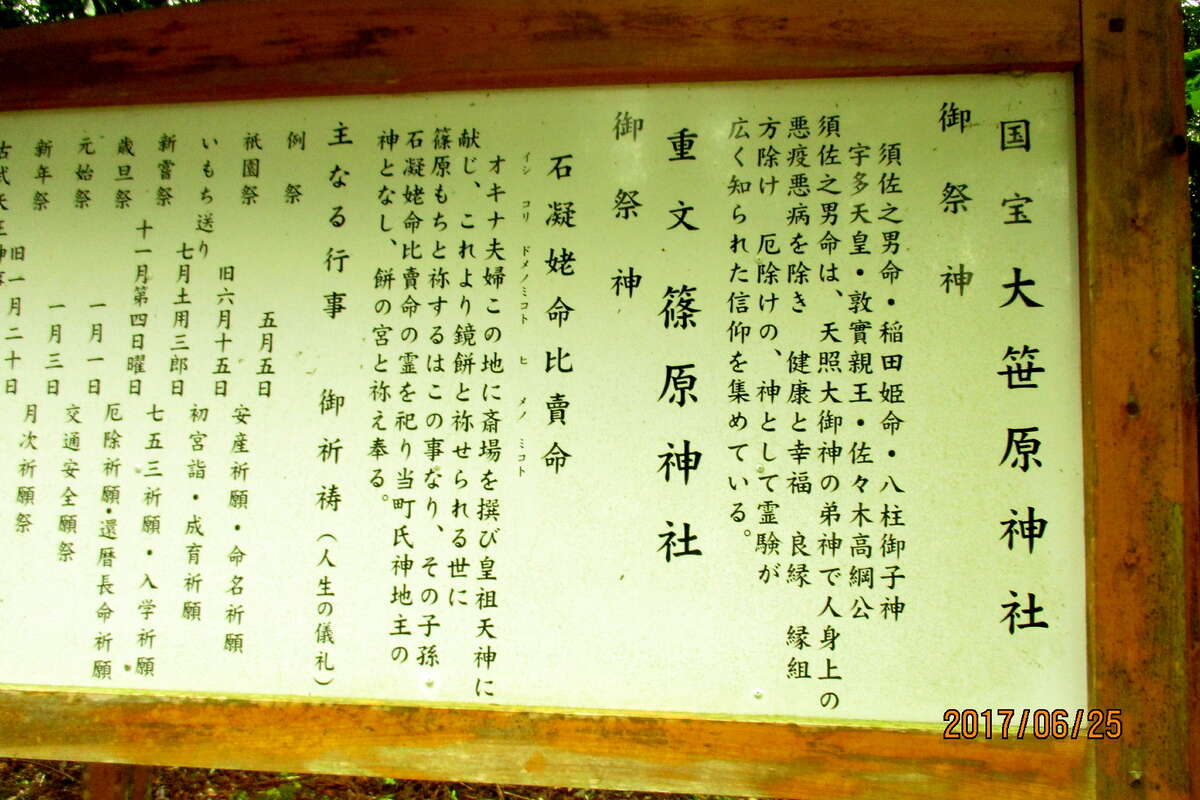 国宝 大笹原神社
御祭神
須佐之男命・稲田姫命・八柱御子神
宇多天皇・敦實親王・佐々木高綱公
須佐之男命は、天照大御神の弟神で人身上の
悪疫悪病を除き 健康と幸福 良縁 縁組
方除け 厄除けの、神として霊験が
広く知られた信仰を集めている。
重文 篠原神社
御祭神
石凝姥命比賣命
イシ コリ ドメノミコト ヒ メノ ミコト
オキナ夫婦この地に斎場を撰び皇祖天神に
献じ、これより鏡餅と祢せられる世に
篠原もちと祢するはこの事なり、その子孫
石凝姥命比賣命の霊を祀り当町氏神地主の
神となし、餅の宮と祢え奉る。
主なる行事 御祈祷（人生の儀礼）
例祭 五月五日
祇園祭 旧六月十五日
いもち送り 七月土用三郎日
新嘗祭 十一月第四日曜日
歳旦祭 一月一日
元始祭 一月三日
新年祭 旧一月二十日
安産祈願・命名祈願
初宮詣・成育祈願
七五三祈願・入学祈願
厄除祈願・還暦長命祈願
交通安全願祭
月次祈願祭
2017/06/25